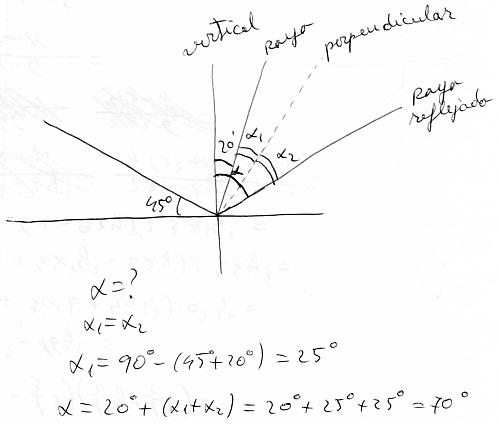 vertical
rayo
perpendicular
rayo
reflejado
20°
α₁
α₂
α
45°
α = ?
α₁ = α₂
α₁ = 90° - (45° + 20°) = 25°
α = 20° + (α₁ + α₂) = 20° + 25° + 25° = 70°